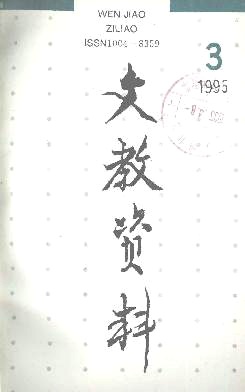 WEN JIAO
ZILIAO
ISSN1004-8359
3
1995
文教资料